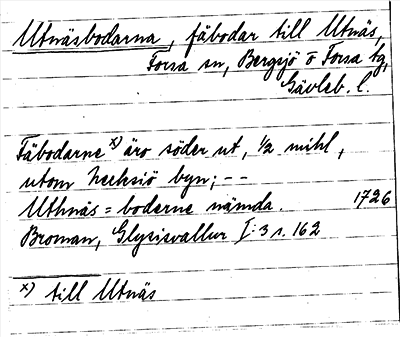 Utnäsbodarna, fäbodar till Utnäs,
Forsa sn, Bergsjö o Forsa tg,
Gävleb. l.
Fäbodarne x) äro söder ut, ½ mihl,
utom hecksiö byn; - -
Uthnäs=boderne nämda. 1726
Broman, Glysisvallur I:3 s. 162
x) till Utnäs